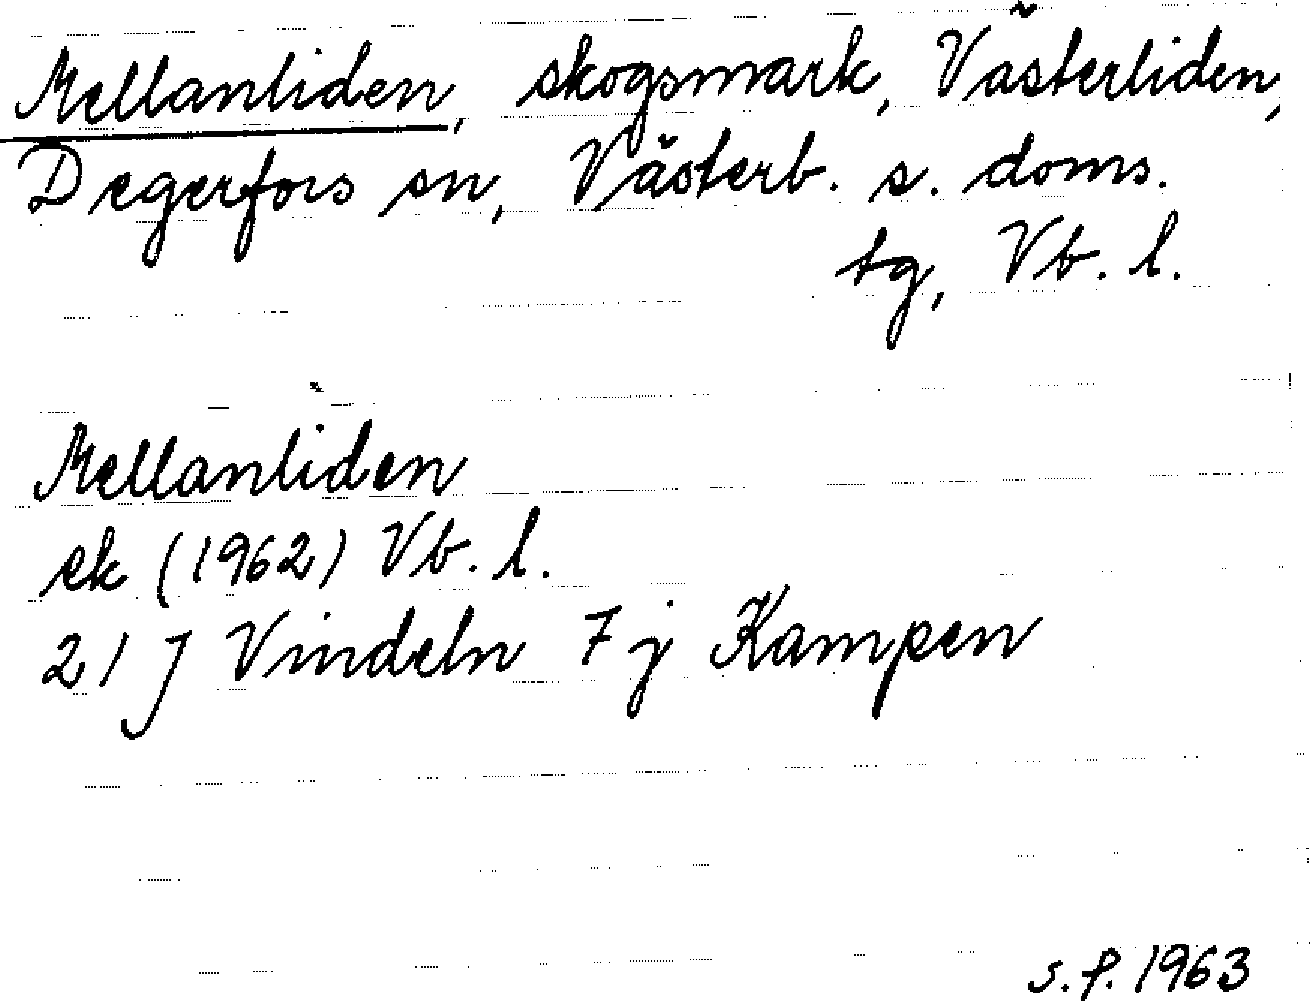 Mellanliden, skogsmark, Västerliden,
Degerfors sn, Västerb. s. doms.
tg, Vb. l.
Mellanliden
ek (1962) Vb. l.
21 J Vindeln 7 j Kampen
s. f. 1963